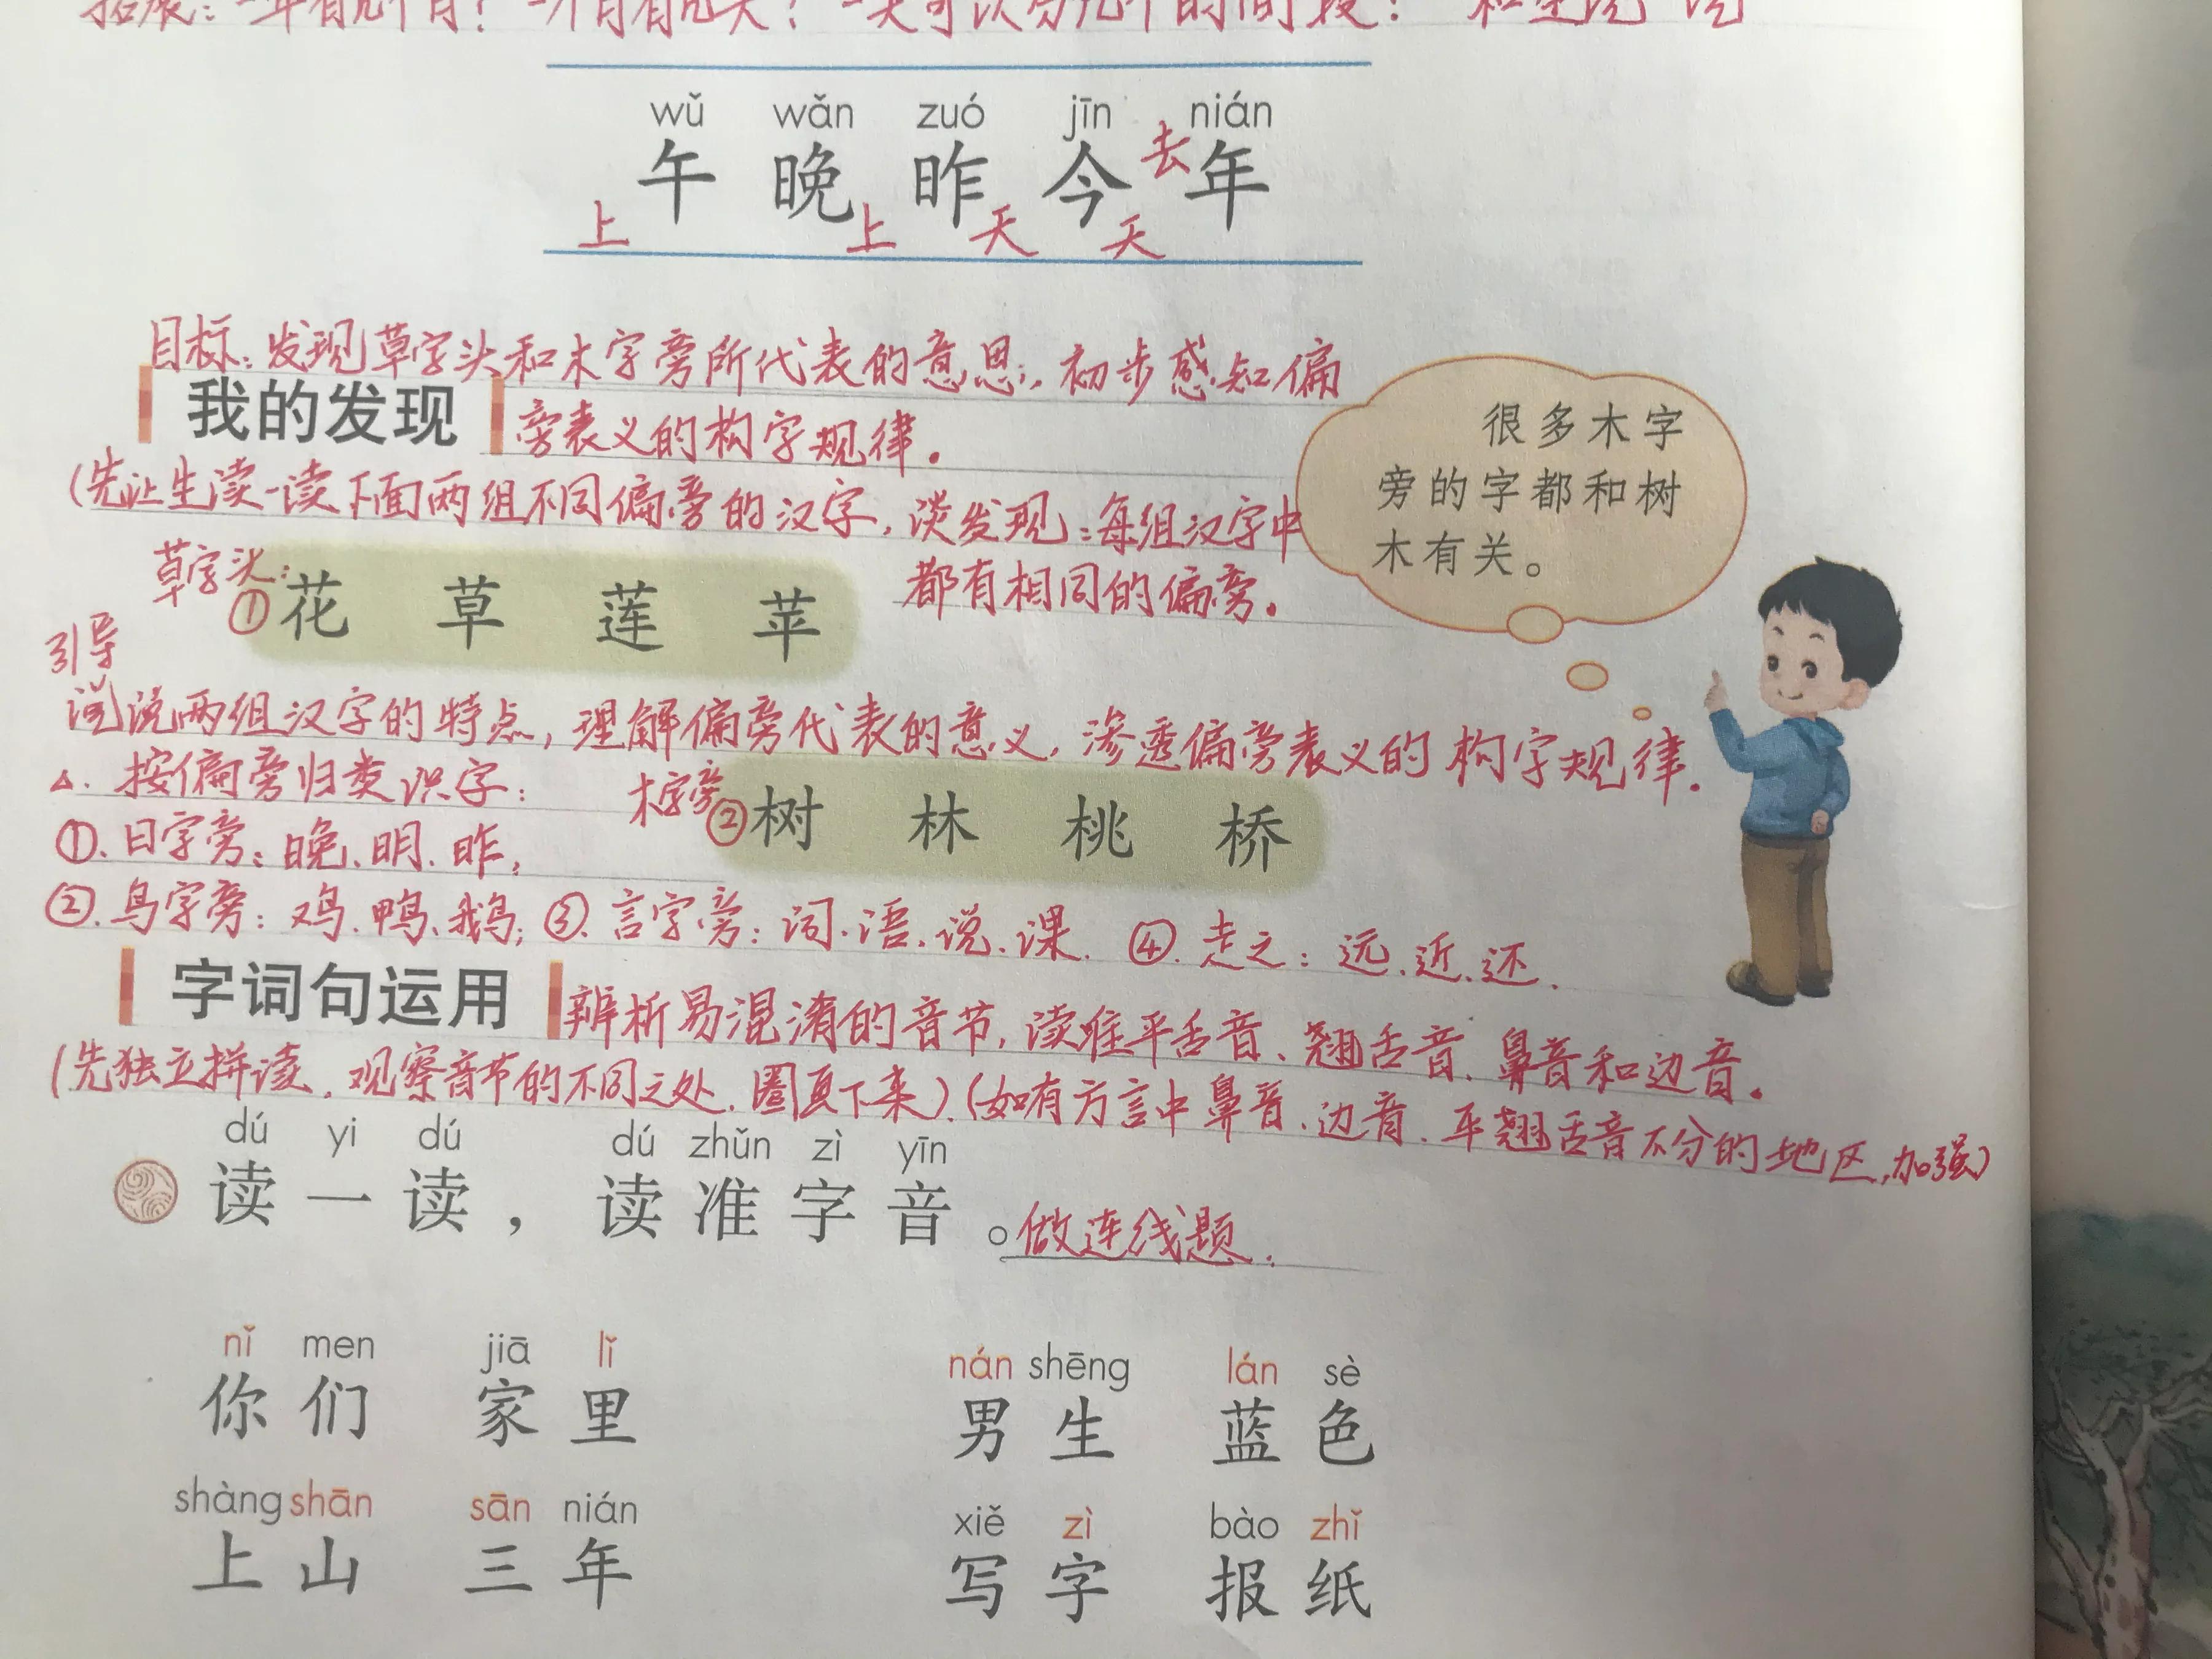 拓展：一年有几个月？一个月有几天？一天可以分几个时间段？
wǔ wǎn zuó jīn nián
上午 晚上 昨天 今天 去年
目标：发现草字头和木字旁所代表的意思，初步感知偏
我的发现 旁表义的构字规律。
(先让生读一读下面两组不同偏旁的汉字，谈发现：每组汉字中
都有相同的偏旁。
很多木字
旁的字都和树
木有关。
草字头：
①花 草 莲 苹
引导
说说两组汉字的特点，理解偏旁代表的意义，渗透偏旁表义的构字规律.
△. 按偏旁归类识字：
木字旁②树 林 桃 桥
①. 日字旁：晚、明、昨，
②. 鸟字旁：鸡、鸭、鹅；③. 言字旁：词、语、说、课. ④. 走之：远、近、还.
字词句运用 辨析易混淆的音节，读准平舌音、翘舌音、鼻音和边音。
(先独立拼读，观察音节的不同之处，圈下来).(如有方言中鼻音、边音、平翘舌音不分的地区，加强)
dú yi dú dú zhǔn zì yīn
读一读，读准字音。做连线题.
nǐ men jiā lǐ nán shēng lán sè
你们 家里 男生 蓝色
shàng shān sān nián xiě zì bào zhǐ
上山 三年 写字 报纸